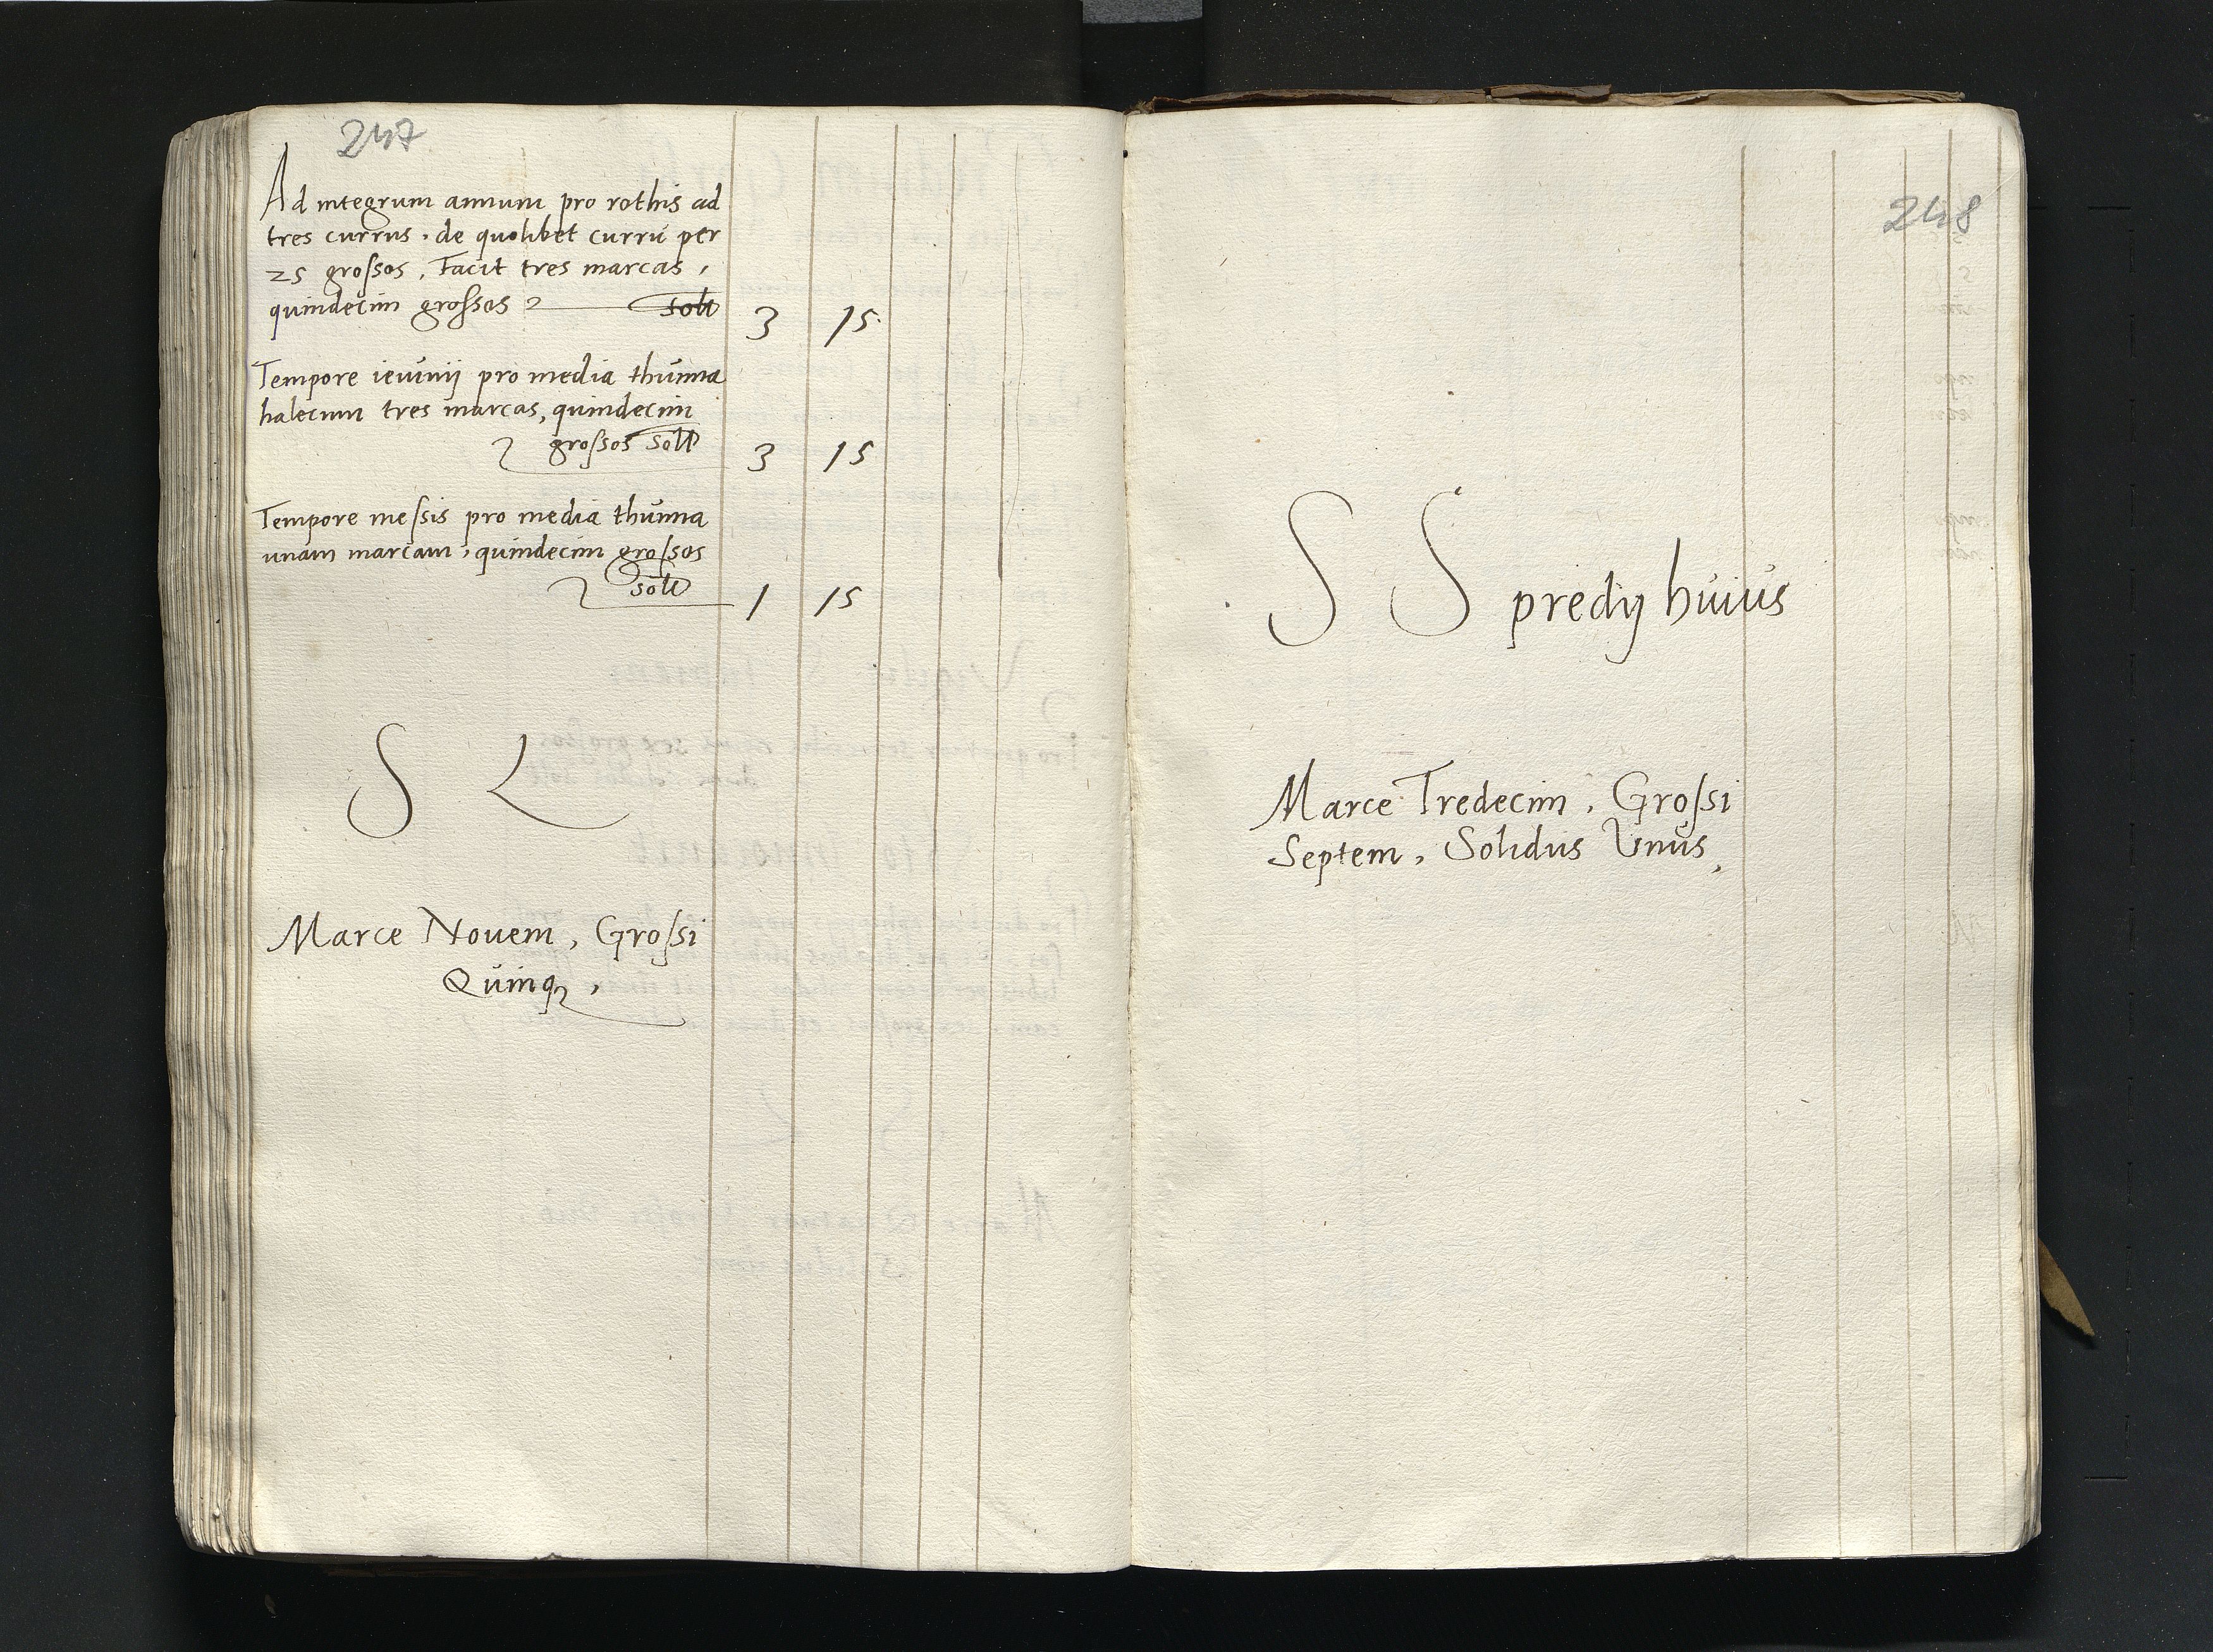 247
Ad integrum annum pro rothis ad
tres currus. de quolibet curru per
25 grossos, Facit tres marcas,
quindecim grossos solt 3 15
Tempore ieiunij pro media thunna
halecum tres marcas, quindecim
grossos solt 3 15
Tempore messis pro media thunna
unam marcam, quindecim grossos
solt 1 15
S L
Marce Nouem, Grossi
Quinq,
248
S S predij huius
Marce Tredecim, Grossi
Septem, Solidus Unus,